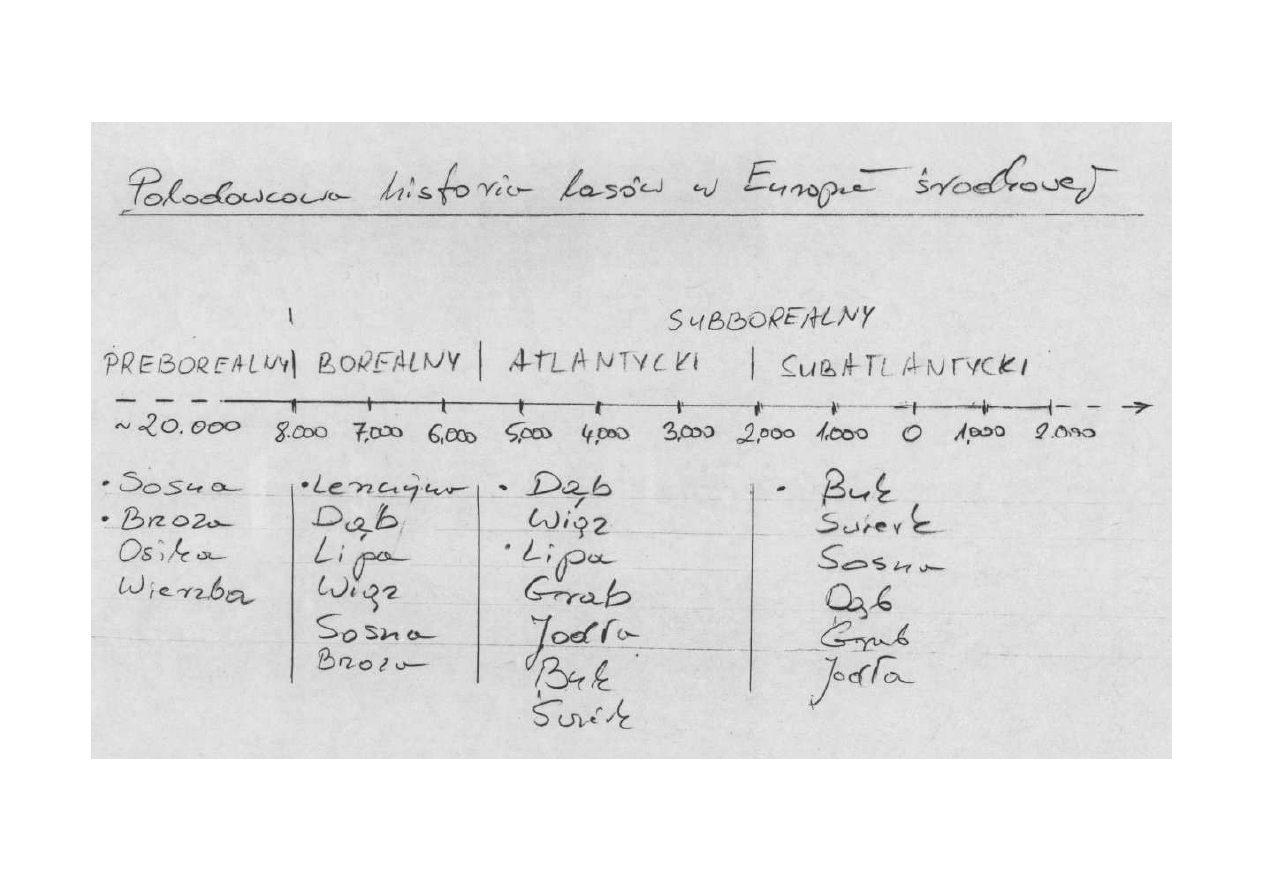 Polodowcowa historia lasów w Europie środkowej
SUBBOREALNY
PREBOREALNY | BOREALNY | ATLANTYCKI | SUBATLANTYCKI
~20.000 8.000 7,000 6,000 5,000 4,000 3,000 2,000 1,000 0 1,000 2.000
• Sosna
• Brzoza
Osika
Wierzba
• Leszczyna
Dąb
Lipa
Wiąz
Sosna
Brzoza
• Dąb
Wiąz
• Lipa
Grab
Jodła
Buk
Świerk
• Buk
Świerk
Sosna
Dąb
Grab
Jodła